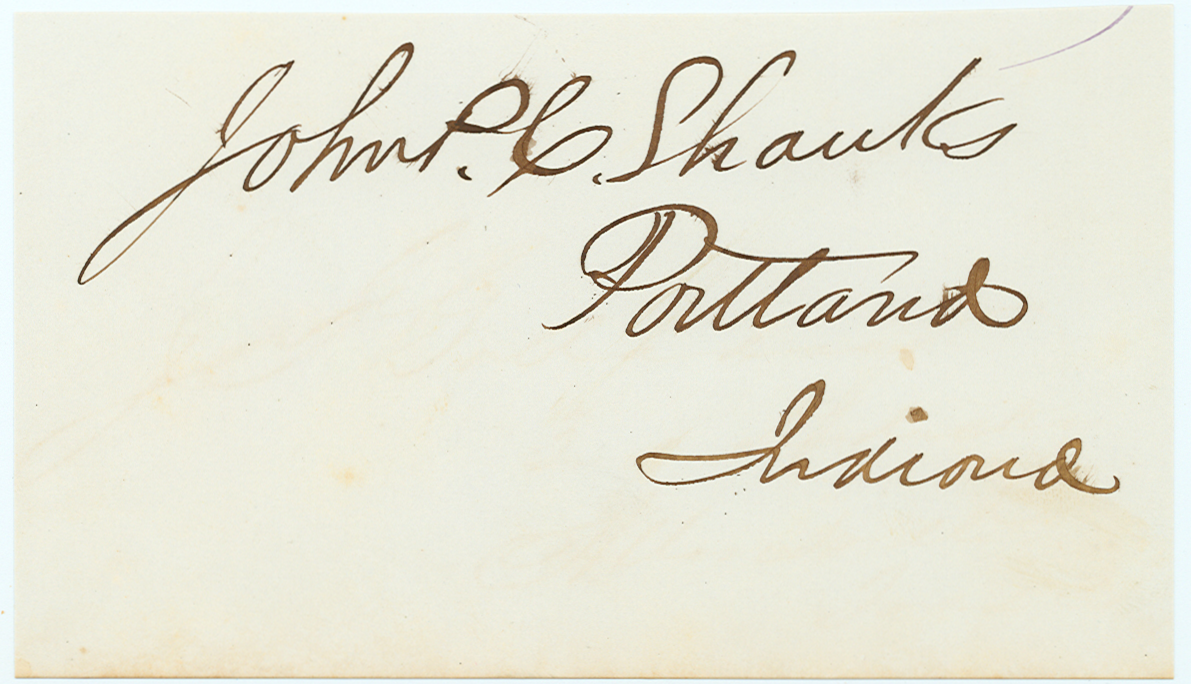 John P. C. Shanks
Portland
Indiana